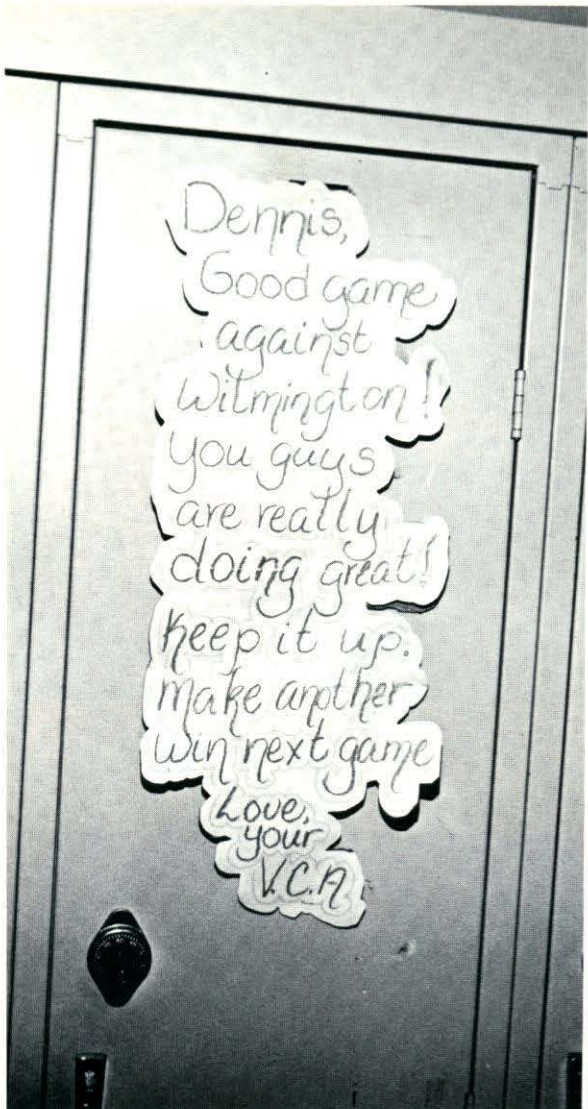 Dennis,
Good game
against
Wilmington!
you guys
are really
doing great!
keep it up.
make another
win next game
Love,
your
V.C.A